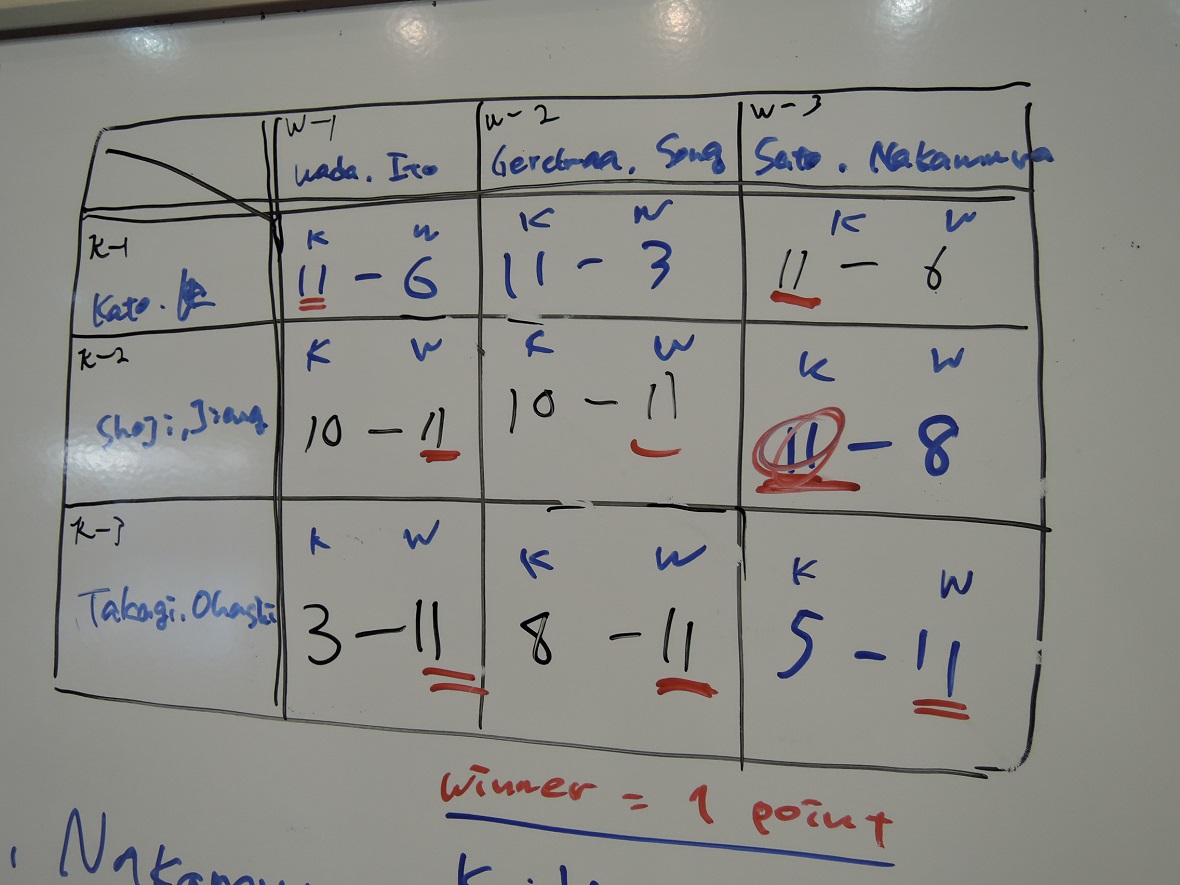 W-1
W-2
W-3
Wada. Ito
Song
Sato. Nakamura
K-1
K W
K W
K W
Kato.
11 - 6
11 - 3
11 - 6
K-2
K W
K W
K W
Shoji, Jiang
10 - 11
10 - 11
11 - 8
K-3
K W
K W
K W
Takagi. Ohashi
3 - 11
8 - 11
5 - 11
winner = 1 point